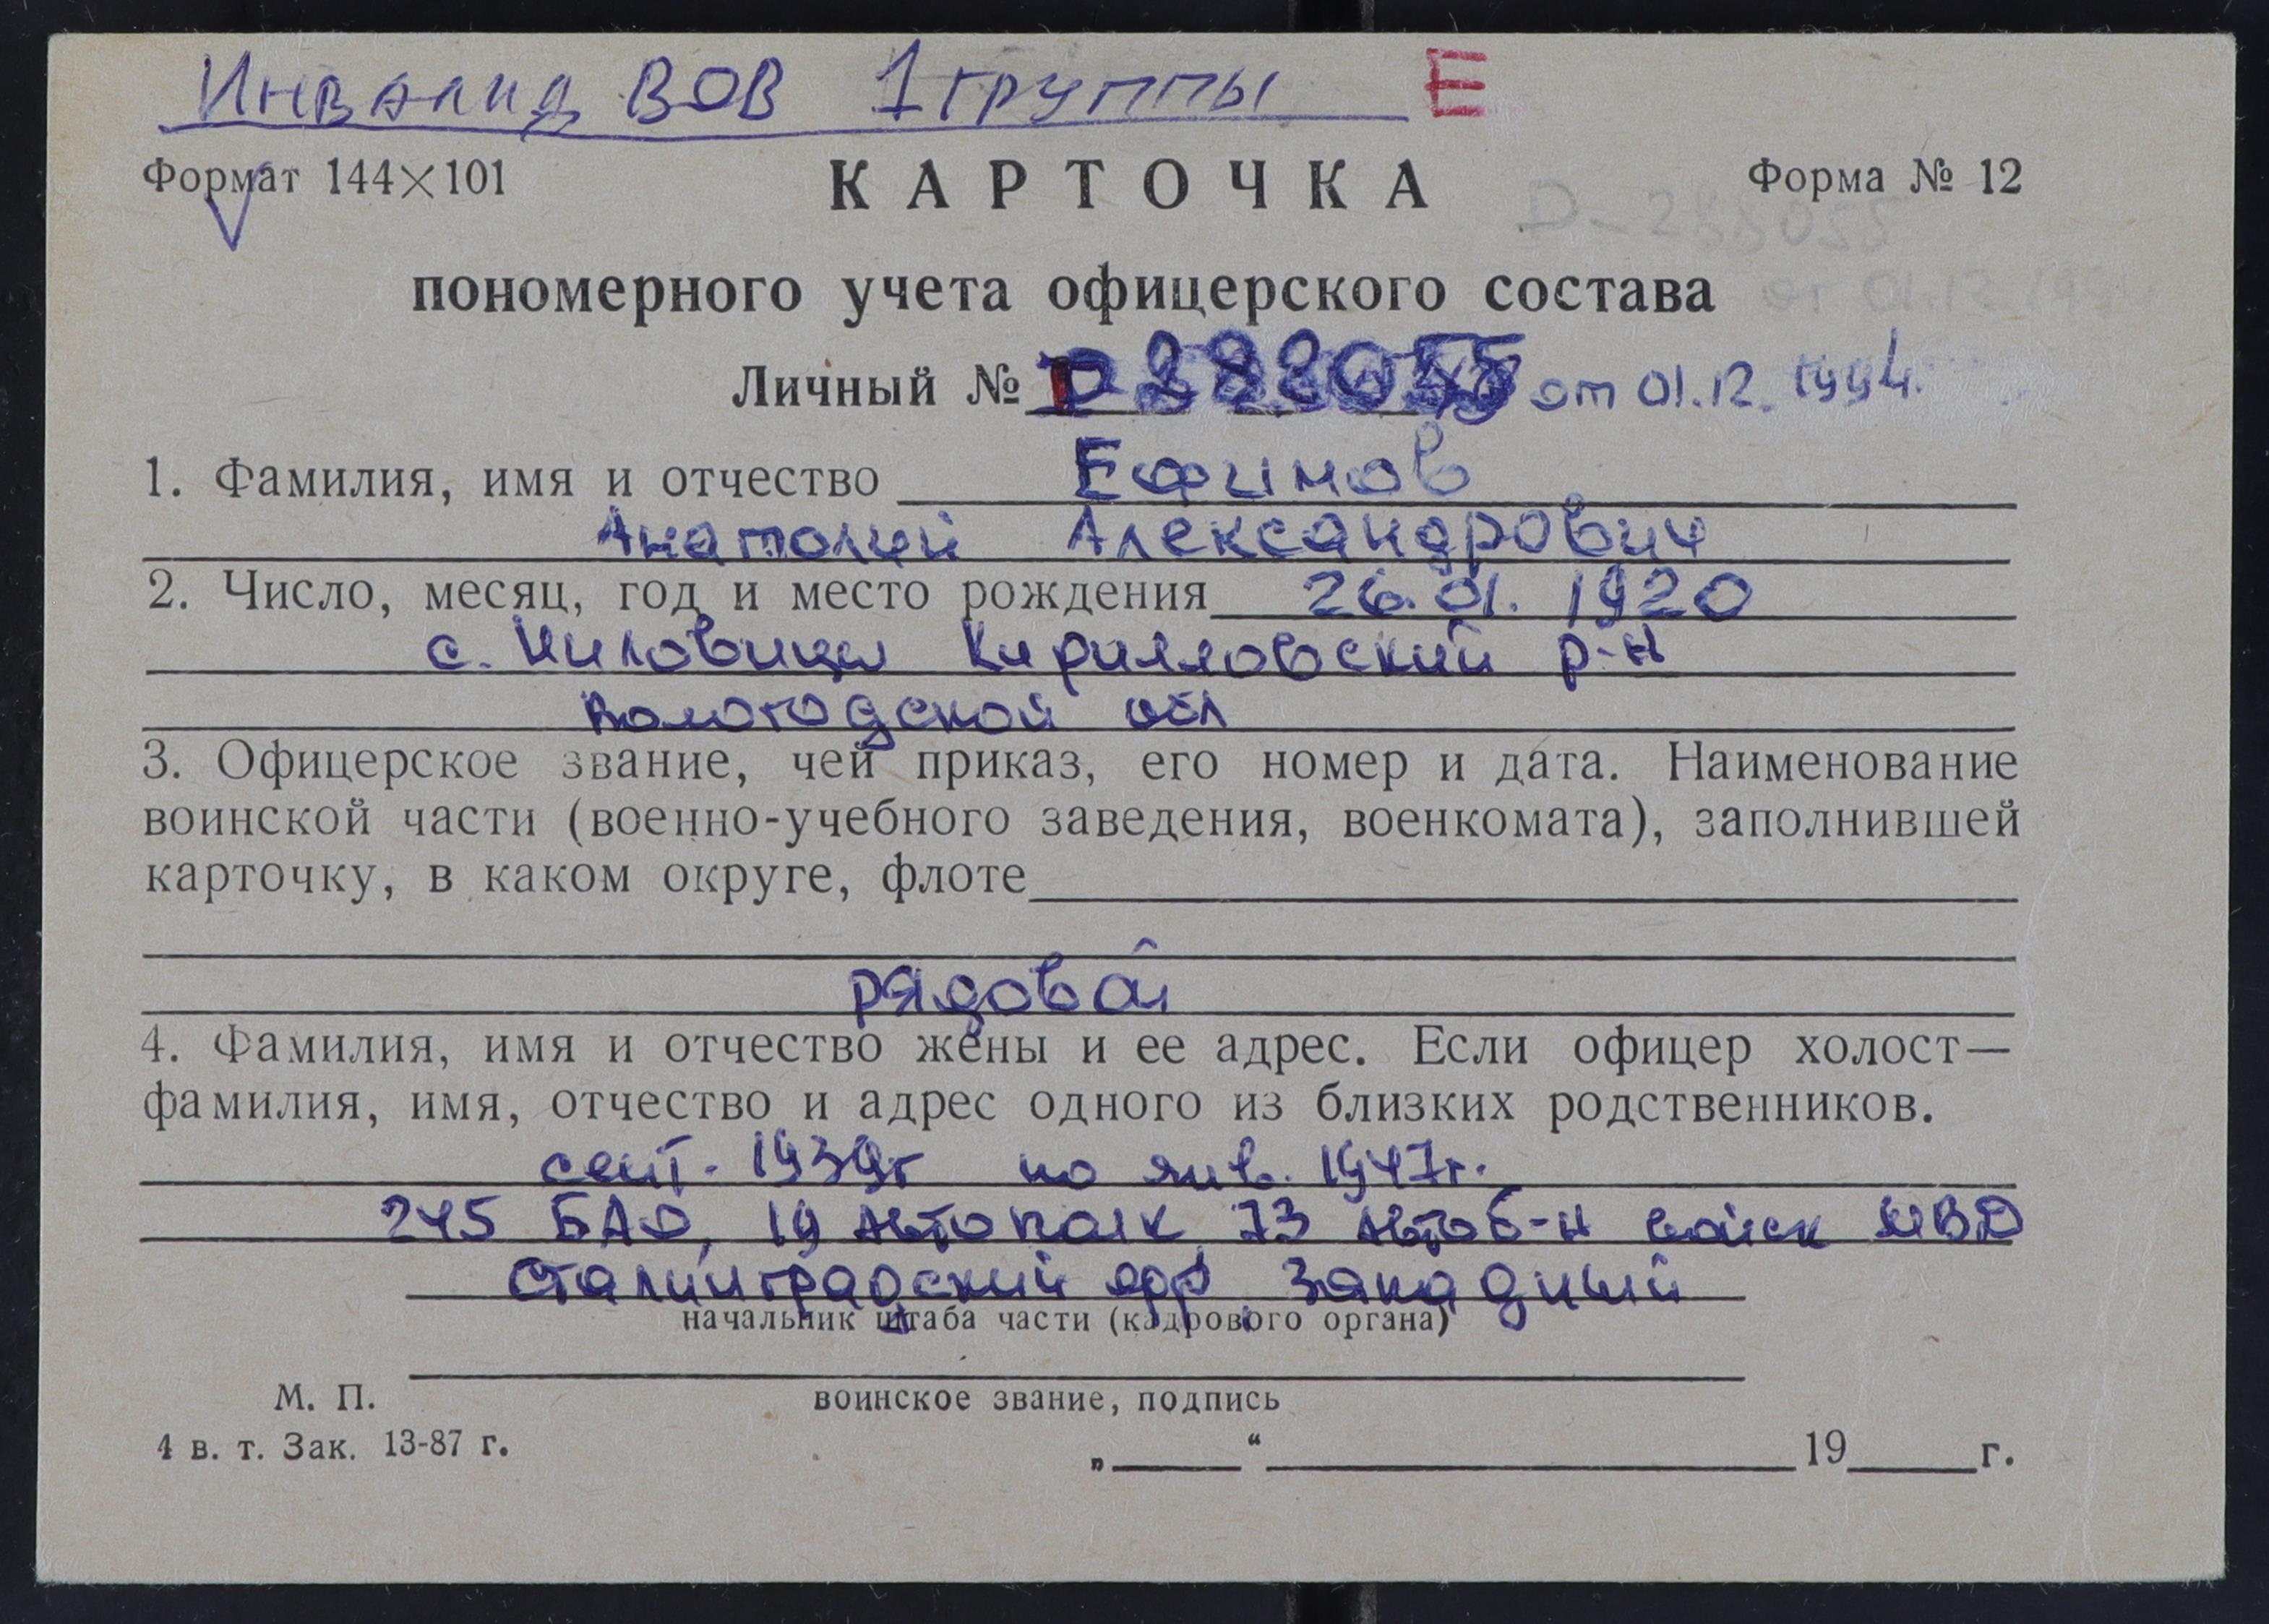 Инвалид ВОВ 1 группы Е
Формат 144×101 КАРТОЧКА Форма № 12
D-288055
от 01.12.199
пономерного учета офицерского состава
Личный № D 288055 от 01.12.1994.
1. Фамилия, имя и отчество Ефимов
Анатолий Александрович
2. Число, месяц, год и место рождения 26.01.1920
с. Ниловицы Кирилловский р-н
Вологодской обл
3. Офицерское звание, чей приказ, его номер и дата. Наименование
воинской части (военно-учебного заведения, военкомата), заполнившей
карточку, в каком округе, флоте
рядовой
4. Фамилия, имя и отчество жены и ее адрес. Если офицер холост—
фамилия, имя, отчество и адрес одного из близких родственников.
сент. 1939г по янв. 1947г.
245 БАО, 19 автополк, 73 автоб-н войск МВД
Сталинградский ффр Западный
начальник штаба части (кадрового органа)
М. П. воинское звание, подпись
4 в. т. Зак. 13-87 г. „ “ 19 г.